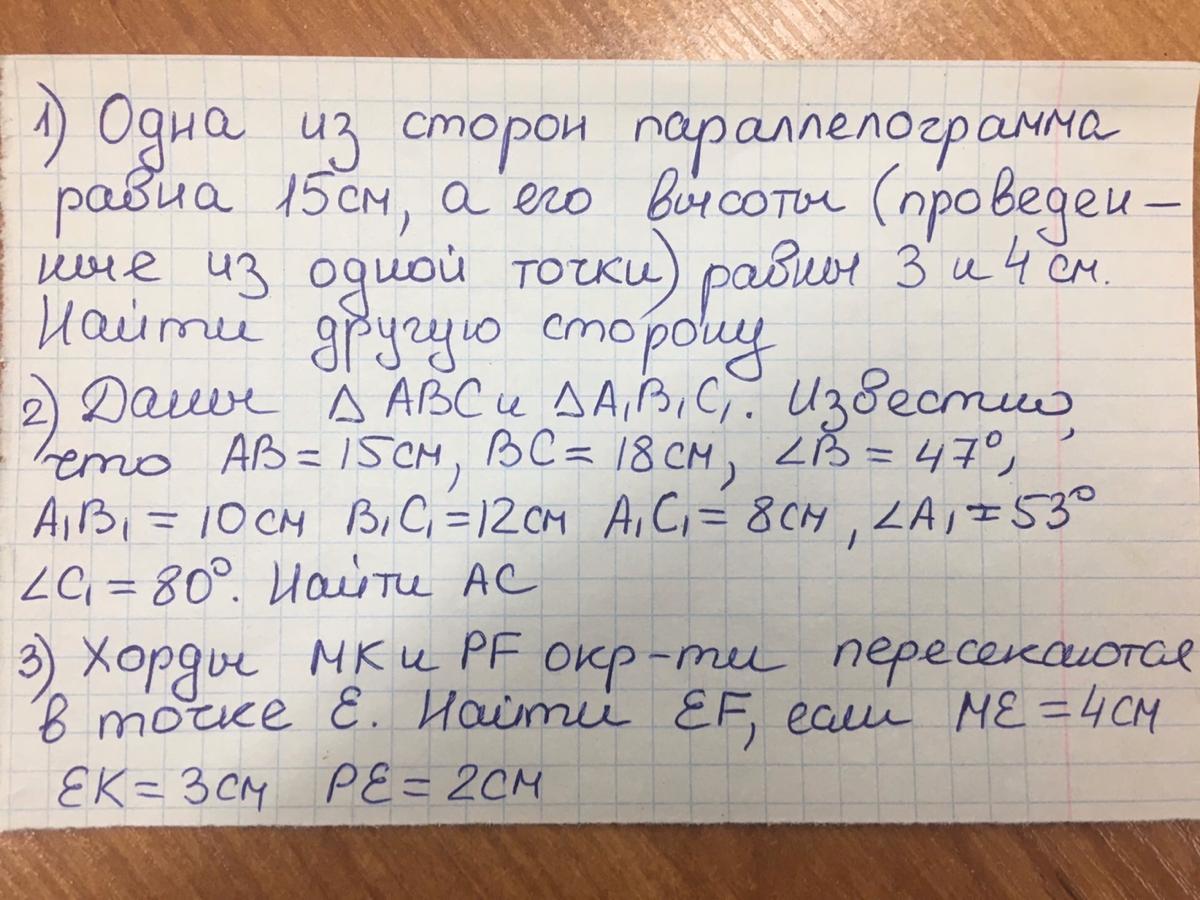 1) Одна из сторон параллелограмма
равна 15см, а его высоты (проведен-
ные из одной точки) равны 3 и 4 см.
Найти другую сторону
2) Даны △ ABC и △A₁B₁C₁. Известно,
что AB = 15см, BC = 18см, ∠B = 47°,
A₁B₁ = 10см B₁C₁ = 12см A₁C₁ = 8см, ∠A₁ = 53°
∠C₁ = 80°. Найти AC
3) Хорды MK и PF окр-ти пересекаются
в точке E. Найти EF, если ME = 4см
EK = 3см PE = 2см